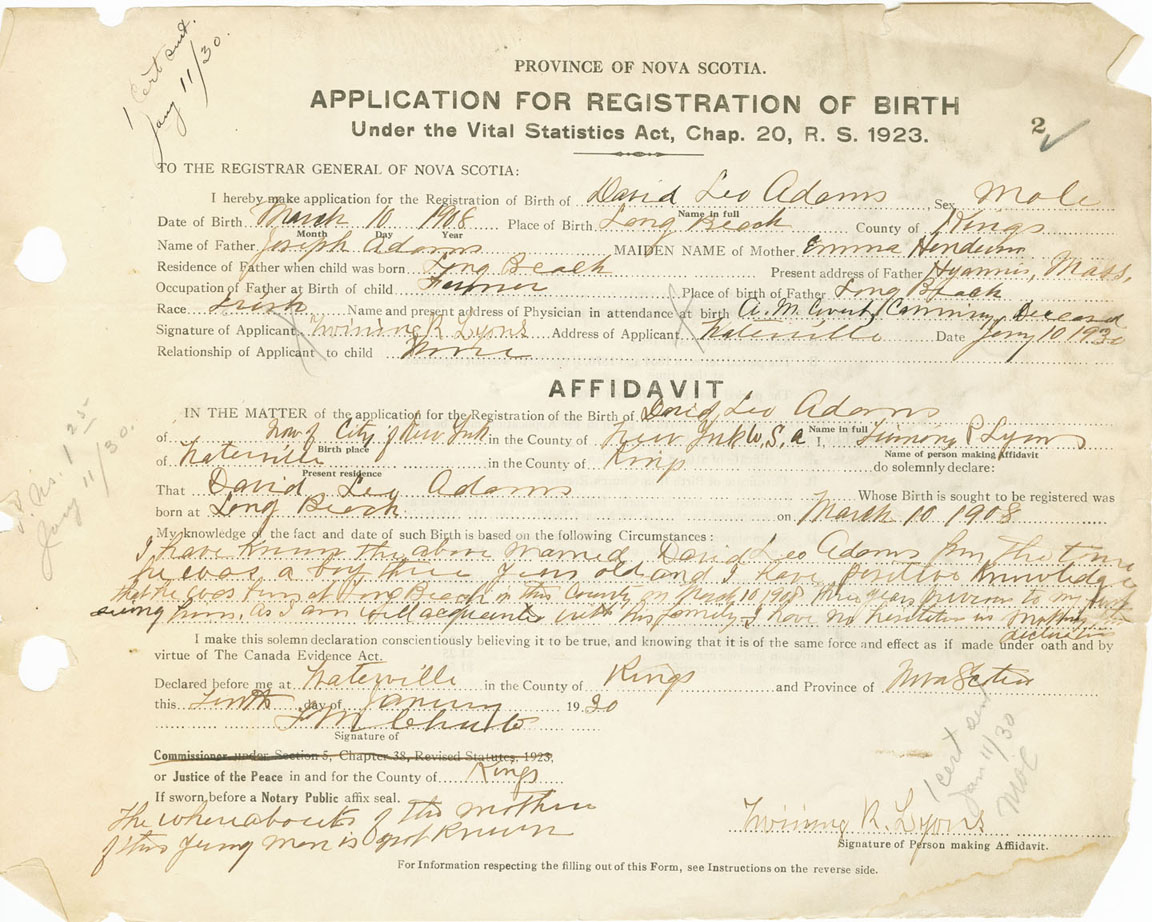 1 Cert sent.
Jany 11/30.
PROVINCE OF NOVA SCOTIA.
APPLICATION FOR REGISTRATION OF BIRTH
Under the Vital Statistics Act, Chap. 20, R. S. 1923.
2
TO THE REGISTRAR GENERAL OF NOVA SCOTIA:
I hereby make application for the Registration of Birth of David Leo Adams Sex Male
Name in full
Date of Birth March 10 1908 Place of Birth Long Beach County of Kings
Month Day Year
Name of Father Joseph Adams MAIDEN NAME of Mother Emma
Residence of Father when child was born Long Beach Present address of Father Hyannis, Mass.
Occupation of Father at Birth of child Farmer Place of birth of Father Long Beach
Race Irish Name and present address of Physician in attendance at birth A. M. Canning Deceased
Signature of Applicant Twining R. Lyons Address of Applicant Waterville Date Jany 10 1930
Relationship of Applicant to child None
AFFIDAVIT
IN THE MATTER of the application for the Registration of the Birth of David Leo Adams
Name in full
of now of City of New York in the County of New York U.S.a I, Twining R Lyons
Birth place Name of person making Affidavit
of Waterville in the County of Kings do solemnly declare:
Present residence
That David Leo Adams Whose Birth is sought to be registered was
born at Long Beach on March 10 1908
My knowledge of the fact and date of such Birth is based on the following Circumstances:
I have known the above named David Leo Adams from the time
he was a boy three years old and I have positive knowledge
that he was born at Long Beach in this County, on March 10 1908 three years previous to my first
seeing him. As I am well acquainted with his family I have no hesitation in making this
declaration
I make this solemn declaration conscientiously believing it to be true, and knowing that it is of the same force and effect as if made under oath and by
virtue of The Canada Evidence Act.
Declared before me at Waterville in the County of Kings and Province of Nova Scotia
this tenth day of January 1930
Signature of
Commissioner under Section 5, Chapter 38, Revised Statutes, 1923,
or Justice of the Peace in and for the County of Kings
If sworn before a Notary Public affix seal.
The whereabouts of the mother
of this young man is not known
Twining R. Lyons
Signature of Person making Affidavit.
For Information respecting the filling out of this Form, see Instructions on the reverse side.
Jany 11/30.
1 cert sent
Jan 11/30